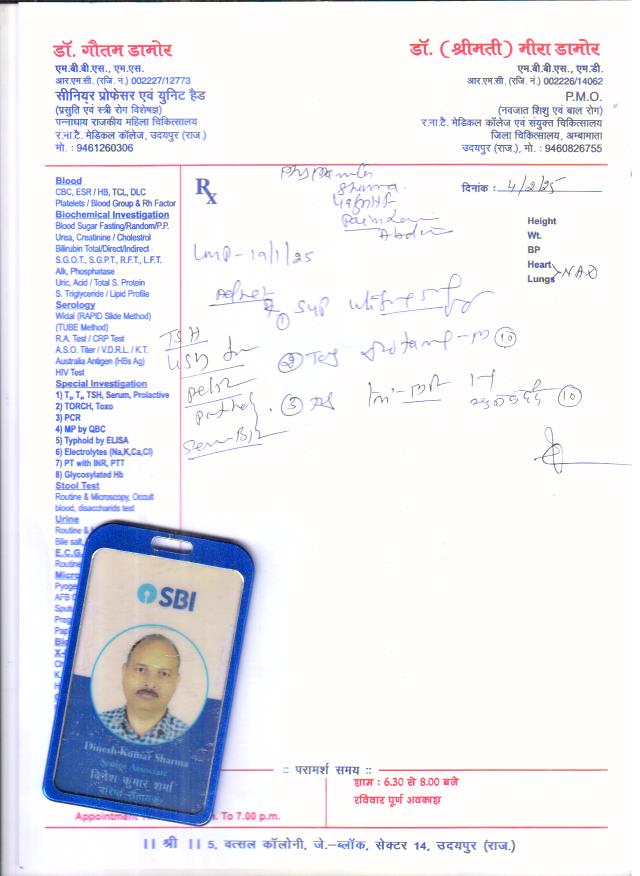 डॉ. गौतम डामोर
एम.बी.बी.एस., एम.एस.
आर.एम.सी. (रजि. नं.) 002227/12773
सीनियर प्रोफेसर एवं युनिट हैड
(प्रसुति एवं स्त्री रोग विशेषज्ञ)
पन्नाधाय राजकीय महिला चिकित्सालय
र.ना.टै. मेडिकल कॉलेज, उदयपुर (राज.)
मो. : 9461260306
डॉ. (श्रीमती) मीरा डामोर
एम.बी.बी.एस., एम.डी.
आर.एम.सी. (रजि. नं.) 002226/14062
P.M.O.
(नवजात शिशु एवं बाल रोग)
र.ना.टै. मेडिकल कॉलेज एवं संयुक्त चिकित्सालय
जिला चिकित्सालय, अम्बामाता
उदयपुर (राज.), मो. : 9460826755
Blood
CBC, ESR / HB, TCL, DLC
Platelets / Blood Group & Rh Factor
Biochemical Investigation
Blood Sugar Fasting/Random/P.P.
Urea, Creatinine / Cholestrol
Bilirubin Total/Direct/Indirect
S.G.O.T., S.G.P.T., R.F.T., L.F.T.
Alk, Phosphatase
Uric, Acid / Total S. Protein
S. Triglyceride / Lipid Profile
Serology
Widal (RAPID Slide Method)
(TUBE Method)
R.A. Test / CRP Test
A.S.O. Titer / V.D.R.L. / K.T.
Australia Antigen (HBs Ag)
HIV Test
Special Investigation
1) T₃, T₄, TSH, Serum, Prolactive
2) TORCH, Toxo
3) PCR
4) MP by QBC
5) Typhoid by ELISA
6) Electrolytes (Na,K,Ca,Cl)
7) PT with INR, PTT
8) Glycosylated Hb
Stool Test
Routine & Microscopy, Occult
blood, disaccharids test
Urine
Routine &
Bile salt,
E.C.G.
Routine
Rx
दिनांक : 4/2/25
Height
Wt.
BP
Heart
Lungs NAD
Sharma
LMP - 19/1/25
① Syp
TSH
USG
②
⑩
③
⑩
SBI
Dinesh Kumar Sharma
Senior Associate
दिनेश कुमार शर्मा
:: परामर्श समय ::
शाम : 6.30 से 8.00 बजे
रविवार पूर्ण अवकाश
Appointment
To 7.00 p.m.
|| श्री || 5, वत्सल कॉलोनी, जे.-ब्लॉक, सेक्टर 14, उदयपुर (राज.)